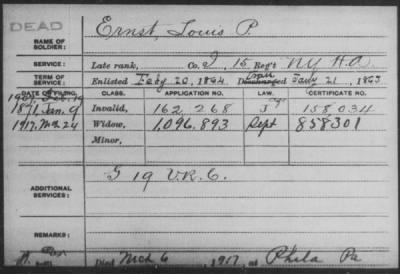 DEAD
Ernst, Louis P.
NAME OF SOLDIER:
SERVICE: Late rank, Co. I, 15 Reg't N.Y. H.A.
TERM OF SERVICE: Enlisted Feby 20, 1864 Discharged July 21, 1865
DATE OF FILING. CLASS. APPLICATION NO. LAW. CERTIFICATE NO.
1871, Jan. 9 Invalid, 162 268 158034
1917, Mch 24 Widow, 1,096,893 Sept 858301
Minor,
ADDITIONAL SERVICES: G 19 V.R.C.
REMARKS:
Died Mch 6, 1917, at Phila Pa